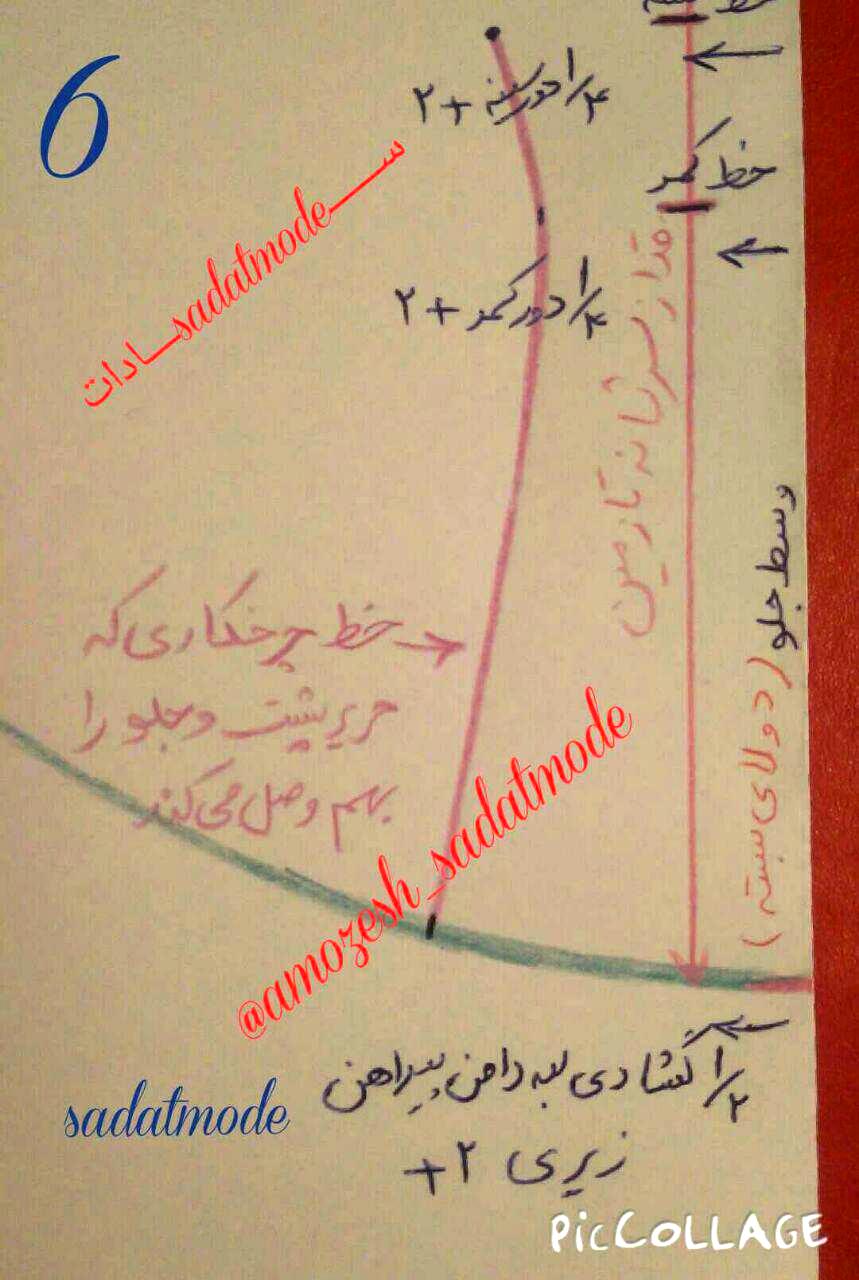 6
خط
۱/۴ دور سینه + ۲
خط کمر
ســـــsadatmodeـــادات
۱/۴ دور کمر + ۲
قد از سرشانه تا زمین
وسط جلو (دولای بسته)
خط چرخکاری که
حریر پشت و جلو را
بهم وصل می کند
@amozesh_sadatmode
۱/۲ گشادی لبه دامن پیراهن
زیری ۲ +
sadatmode
PicCOLLAGE